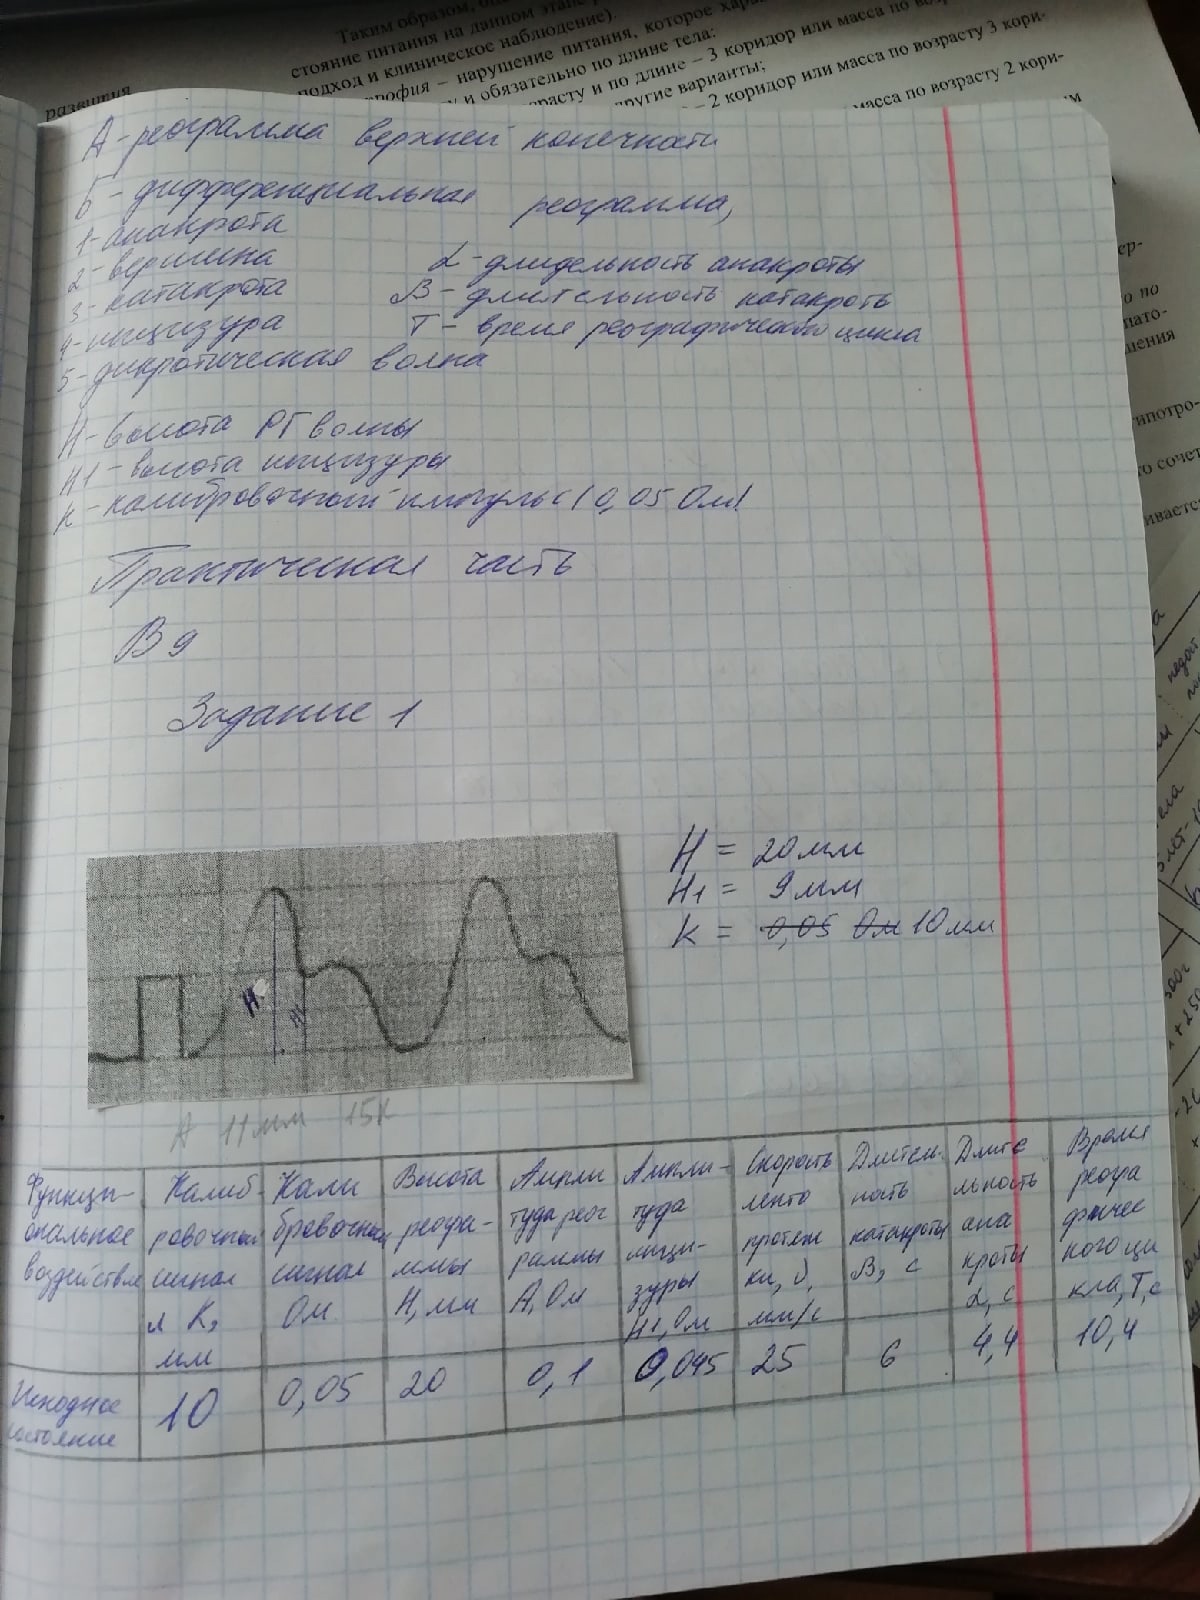 Таким образом,
стояние питания на данном этапе
подход и клиническое наблюдение).
развития
трофия – нарушение питания, которое
у и обязательно по длине тела:
зрасту и по длине – 3 коридор или масса по
другие варианты;
– 2 коридор или масса по возрасту 3 кори-
масса по возрасту 2 кори-
А - реограмма верхней конечности
Б - дифференциальная реограмма,
1 - анакрота
2 - вершина
α - длидельность анакроты
3 - катакрота
B - длительность катакроты
4 - инцизура
T - время реографического цикла
5 - дикротическая волна
H - высота РГ волны
H1 - высота инцизуры
K - калибровочный импульс (0,05 Ом)
Практическая часть
В 9
Задание 1
H = 20 мм
H1 = 9 мм
K = 0,05 Ом 10 мм
H
H1
А 11мм 15К
Функци-
ональное
воздействие
Калиб-
ровочный
сигнал
K,
мм
Кали
бровочный
сигнал
Ом
Высота
реогра-
ммы
H, мм
Ампли
туда реог
раммы
А, Ом
Ампли-
туда
инци-
зуры
H1, Ом
Скорость
ленто
протяж
ки, υ,
мм/с
Длитель-
ность
катакроты
B, с
Длите
льность
ана
кроты
α, с
Время
реогра
фичес
кого ци
кла, Т, с
Исходное
состояние
10
0,05
20
0,1
0,045
25
6
4,4
10,4